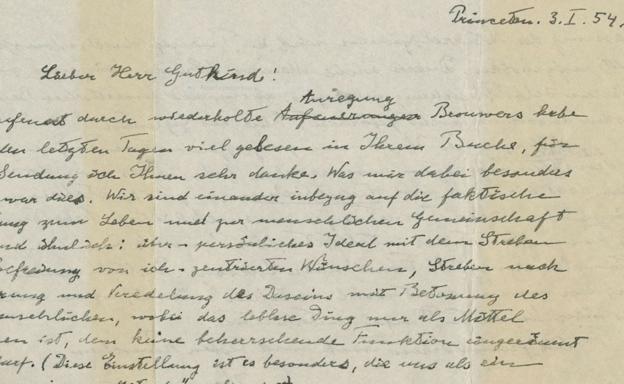 Princeton. 3. I. 54.
Lieber Herr Gutkind!
Anregung
durch wiederholte Brouwers habe
den letzten Tagen viel gelesen in Ihrem Buche, für
Sendung ich Ihnen sehr danke. Was mir dabei besonders
war dies. Wir sind einander inbezug auf die faktische
ung zum Leben und zur menschlichen Gemeinschaft
nd ähnlich: über-persönliches Ideal mit dem Streben
Befreiung von ich-zentrierten Wünschen, Streben nach
rung und Veredelung des Daseins mit Betonung des
nmenschlichen, wobei das leblose Ding nur als Mittel
en ist, dem keine beherrschende Funktion eingeräumt
darf. (Diese Einstellung ist es besonders, die uns als ein